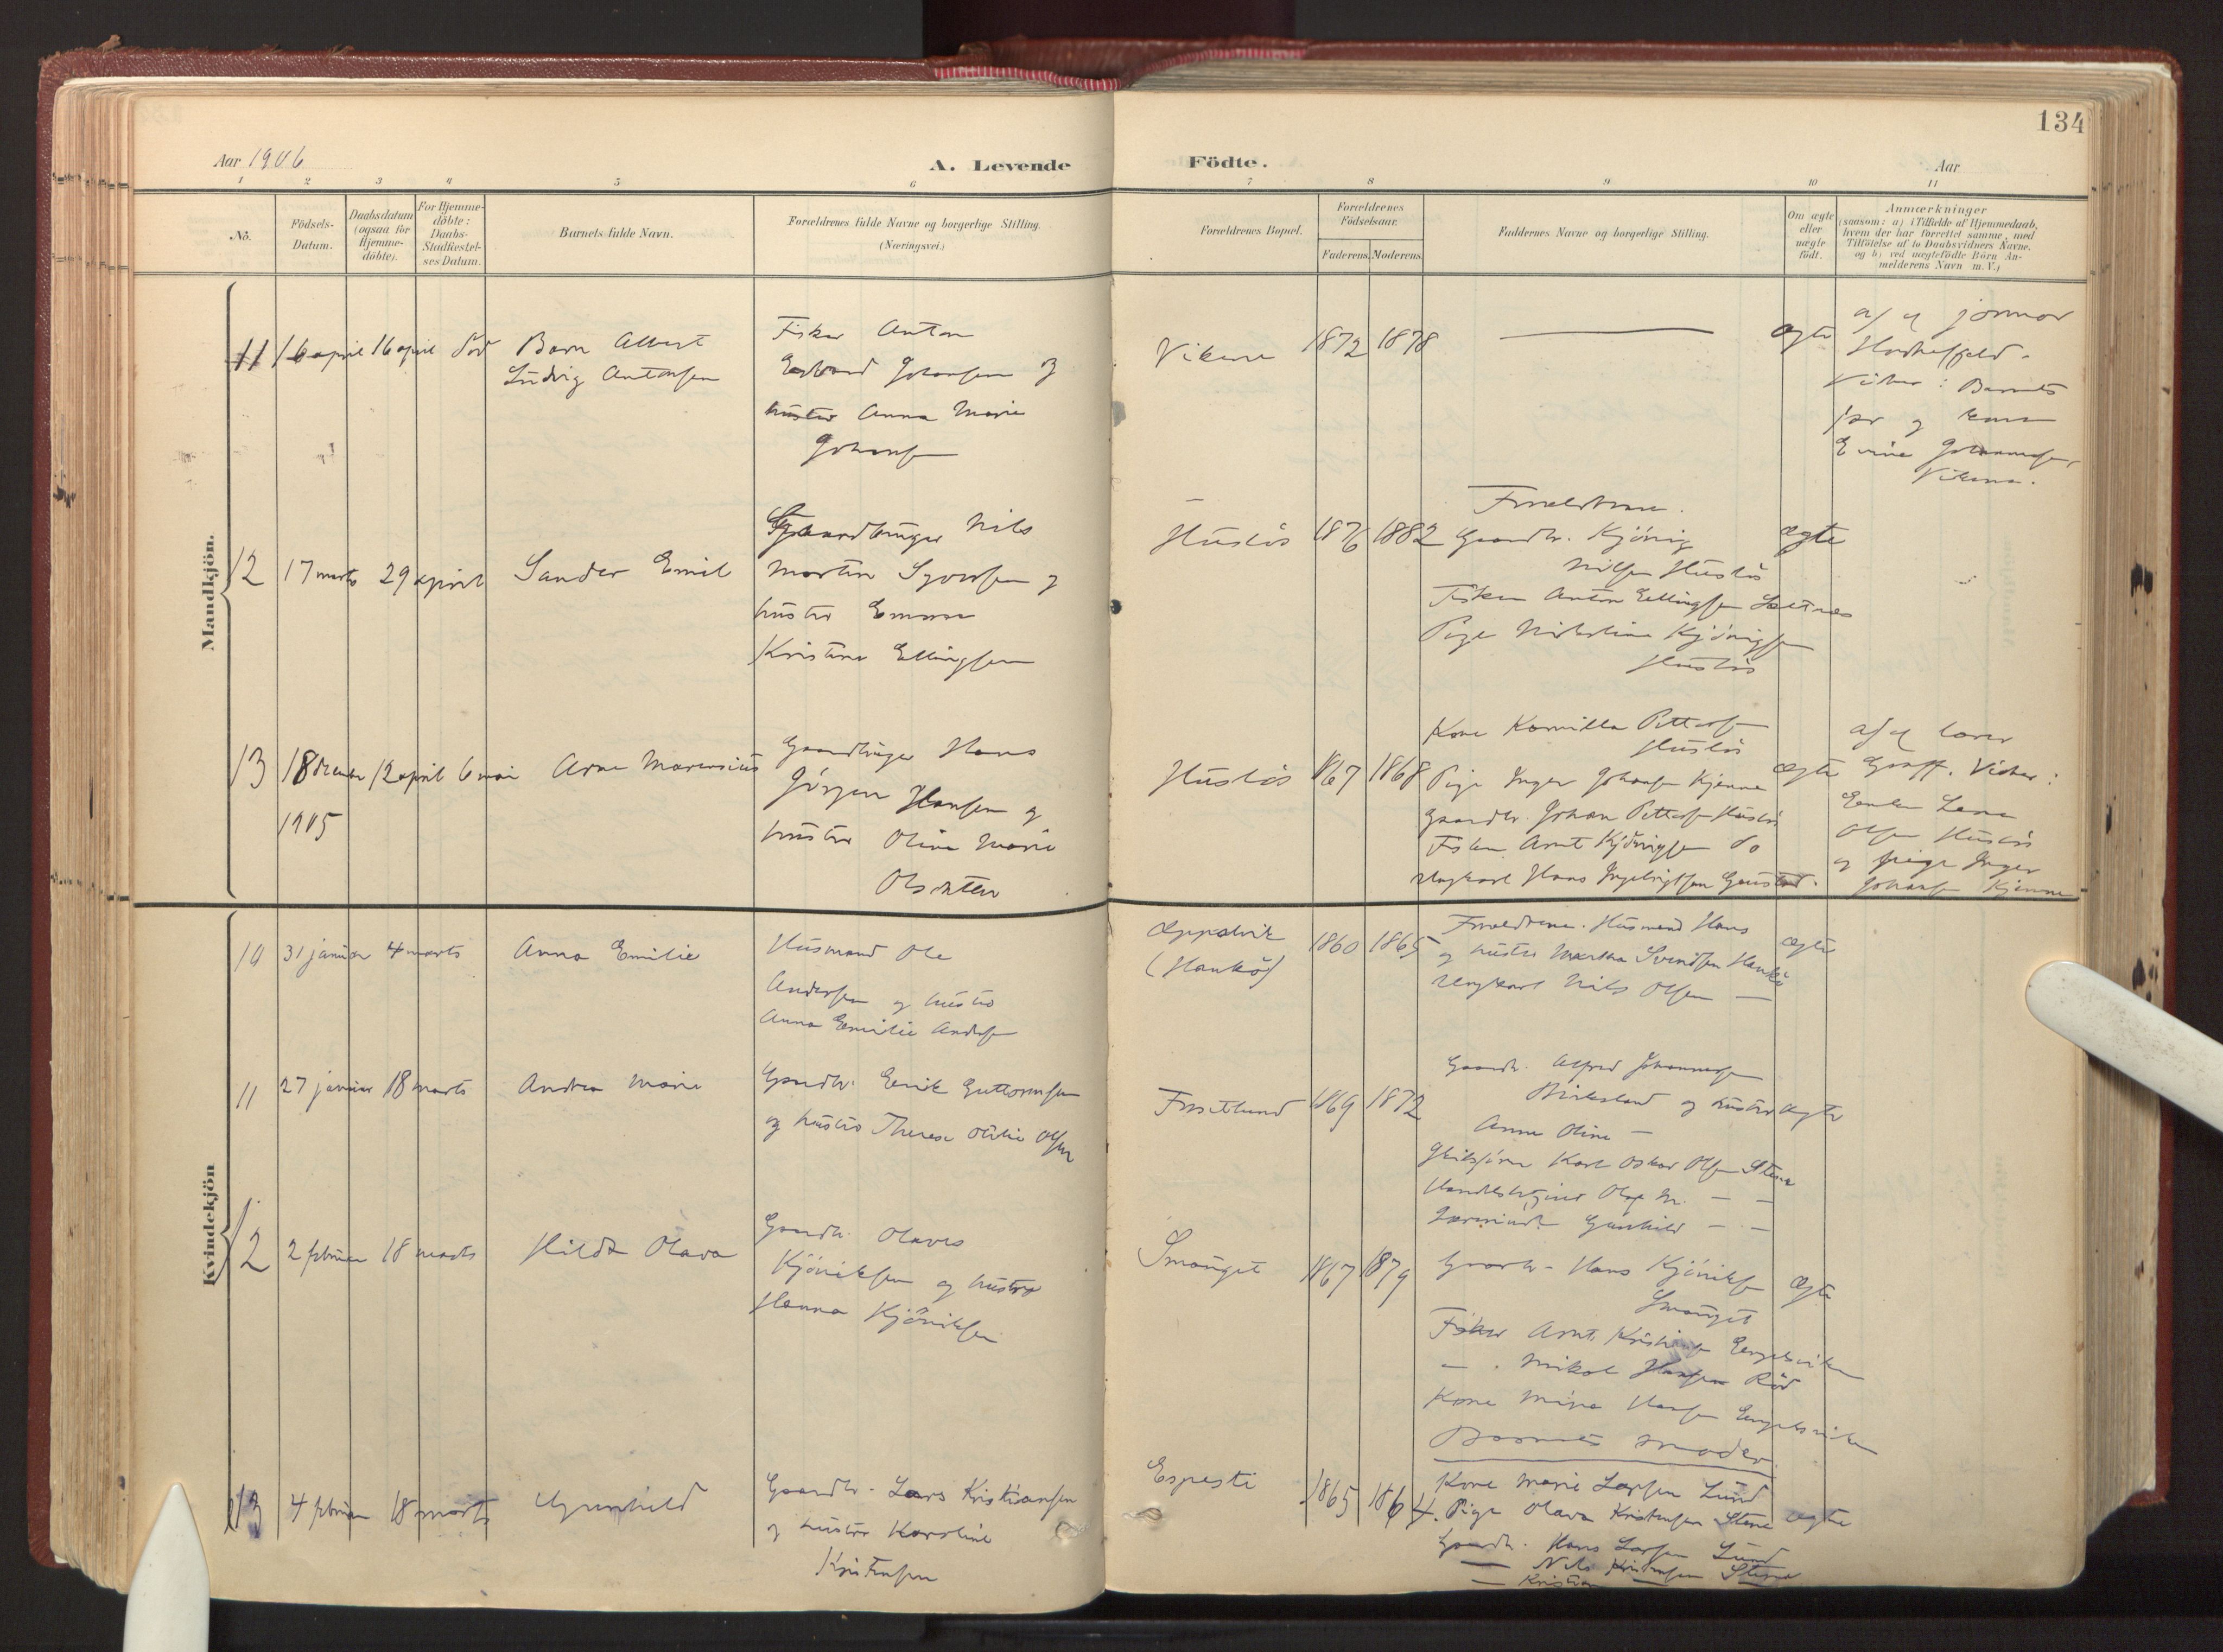 134
Aar 1906
A. Levende
Födte.
Aar
1 2 3 4 5 6 7 8 9 10 11
No.
Födsels-
Datum.
Daabsdatum
(ogsaa for
Hjemme-
döbte).
For Hjemme-
döbte:
Daabs-
Stadfæstel-
ses Datum.
Barnets fulde Navn.
Forældrenes fulde Navne og borgerlige Stilling.
(Næringsvei.)
Forældrenes Bopæl.
Forældrenes
Födselsaar.
Faderens. Moderens.
Faddernes Navne og borgerlige Stilling.
Om ægte
eller
uægte
födt.
Anmærkninger
(saasom: a) i Tilfælde af Hjemmedaab,
hvem der har forrettet samme, med
Tilföielse af to Daabsvidners Navne.
og b) ved uægtefödte Börn An-
melderens Navn m. V.)
Mandkjön.
11 16 april 16 april död
Barn Albert
Ludvig Antonsen
Fisker Anton
Edvard Johansen og
hustru Anna Marie
Johansen
Vikene
1872 1878
ægte
af jormor
Vidner: Barnets
far og kone
Johannesen,
Vikene.
12 17 marts 29 april
Sander Emil
Gaardbruger Nils
Martin Syversen og
hustru Emma
Kristine Ellingsen
Huslös
1876 1882
Forældrene.
Gaardbr. Kjönig
Nilsen Huslös
Fisker Anton Ellingsen
Pige Nikoline Kjönigsen
Huslös
ægte
13 18 december 12 april 6 mai
1905
Arne Marensius
Gaardbruger Hans
Jörgen Hansen og
hustru Oline Marie
Olsdatter
Huslös
1867 1868
Kone Kamilla Pettersen
Huslös
Pige Inger Johansen Kjenne
Gaardbr. Johan Pettersen Huslös
Fisker Arnt Kjönigsen do
Ungkarl Hans Ingebrigtsen
ægte
af lærer
Graff. Vidner:
Enke Lena
Olsen Huslös
og pige Inger
Johansen Kjenne
Kvindekjön
10 31 januar 4 marts
Anna Emilie
Husmand Ole
Andersen og hustru
Anna Emilie Andersen
(Hankö)
1860 1865
Forældrene. Husmand Hans
og hustru Martha Svendsen Hankö
Ungkarl Nils Olsen —
ægte
11 27 januar 18 marts
Andrea Marie
Gaardbr. Emil Guttormsen
og hustru Therese Otilie Olsen
1869 1872
Gaardbr. Alfred Johannesen
og hustru
Anne Oline —
Karl Oskar Olsen Stene
— —
— —
ægte
12 2 februar 18 marts
Hilda Olava
Gaardbr. Olaves
Kjöniksen og hustru
Hanna Kjöniksen
Smauget
1867 1879
Gaardbr. Hans Kjöniksen
Smauget
Fisker Arnt Engelsviken
— Nikol Hansen Röd
Kone Mina Hansen Engelsviken
Barnets moder
ægte
13 4 februar 18 marts
Gunhild
Gaardbr. Lars Kristiansen
og hustru Karoline
Kristensen
Espesti
1865 1864
Kone Marie Larsen Lund
Pige Olava Kristensen Stene
Gaardbr. Hans Larsen Lund
— Nils Kristensen Stene
— Kristian —
ægte